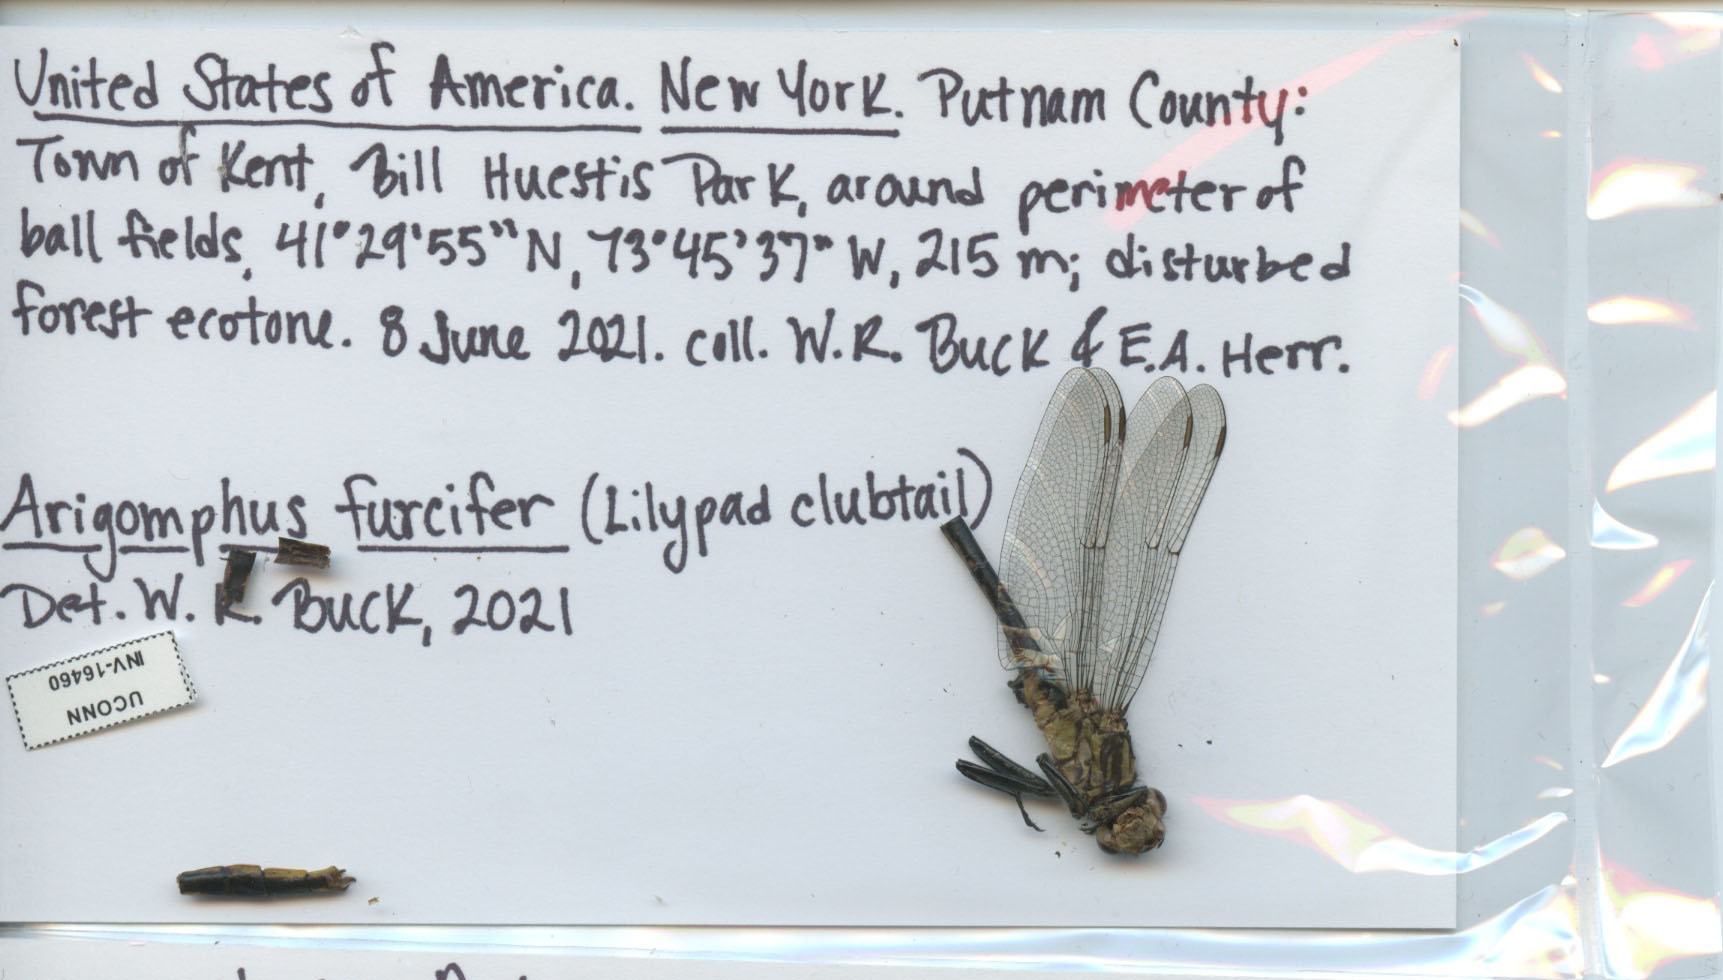 United States of America. New York. Putnam County:
Town of Kent, Bill Huestis Park, around perimeter of
ball fields, 41°29'55"N, 73°45'37" W, 215 m; disturbed
forest ecotone. 8 June 2021. coll. W.R. Buck & E.A. Herr.
Arigomphus furcifer (Lilypad clubtail)
Det. W. R. Buck, 2021
UCONN
INV-16460